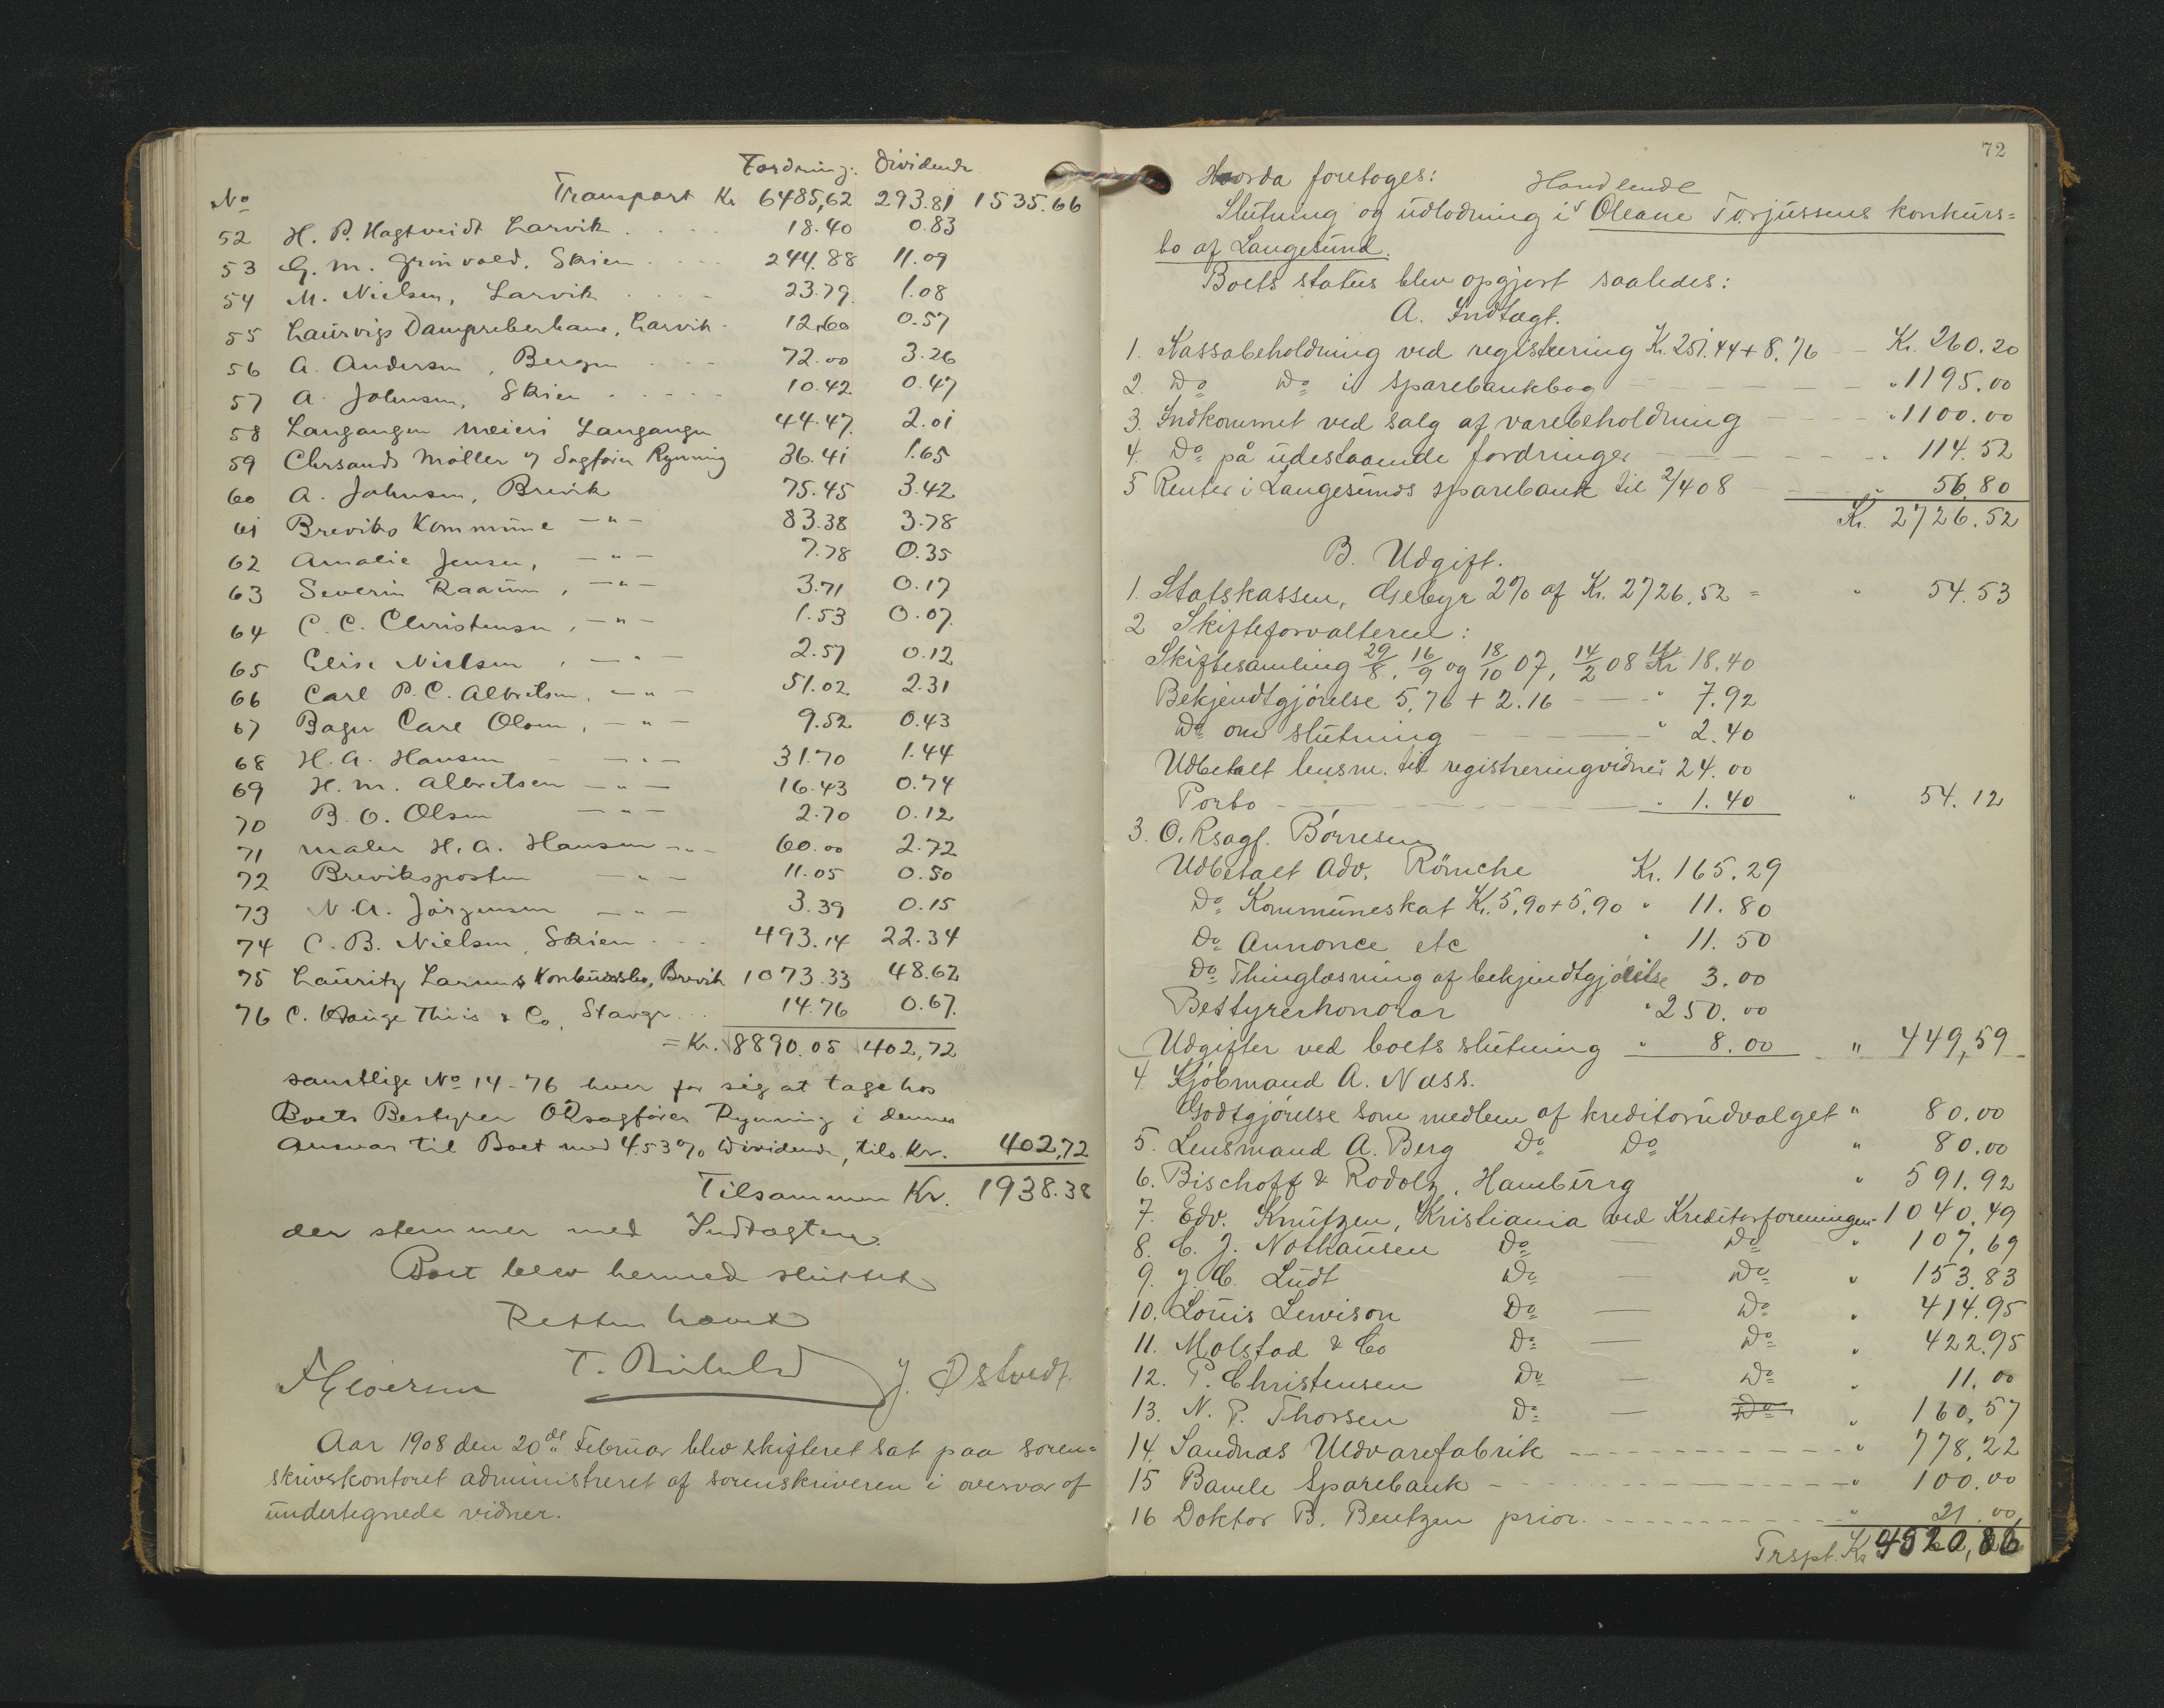 Fordring. Dividende
No Transport Kr 6485,62 293.81 1535.66
52 H. P. Hagtveidt Larvik . . . . 18.40 0.83
53 G. M. Grönvold, Skien . . . . 244.88 11.09
54 M. Nielsen, Larvik . . . . 23.79 1.08
55 Laurvigs Dampveberbane, Larvik . 12.60 0.57
56 A. Andersen, Bergen . . . 72.00 3.26
57 A. Johnsen, Skien . . . . . 10.42 0.47
58 Langangen Meieri Langangen 44.47 2.01
59 Chrsands Möller v/ Sagfører Rynning 36.41 1.65
60 A. Johnsen, Brevik 75.45 3.42
61 Breviks Kommune — " — 83.38 3.78
62 Amalie Jensen, — " — 7.78 0.35
63 Severin Raaum, — " — 3.71 0.17
64 C. C. Christensen, — " — 1.53 0.07
65 Elise Nielsen, — " — 2.57 0.12
66 Carl P. C. Albretsen, — " — 51.02 2.31
67 Bager Carl Olsen, — " — 9.52 0.43
68 H. A. Hansen — " — 31.70 1.44
69 H. M. Albretsen — " — 16.43 0.74
70 B. O. Olsen — " — 2.70 0.12
71 Maler H. A. Hansen — " — 60.00 2.72
72 Breviksposten — " — 11.05 0.50
73 N. A. Jörgensen — " — 3.39 0.15
74 C. B. Nielsen, Skien . . . 493.14 22.34
75 Lauritz Larsens Konkursbo, Brevik 1073.33 48.62
76 C. Hauge Thiis & Co, Stavgr . . . 14.76 0.67
= Kr. 8890.05 402,72
samtlige No 14-76 hver for sig at tage hos
Boets Bestyrer ORsagfører Rynning i dennes
Ansvar til Boet med 4.53% Dividende, tils. Kr. 402,72
Tilsammen Kr. 1938.38
der stemmer med Indtægten.
Boet blev hermed sluttet
Retten hævet
J. Östvedt.
Aar 1908 den 20de Februar blev skifteret sat paa soren=
skriverkontoret administreret af sorenskriveren i overvær af
undertegnede vidner.
72
Hvorda foretoges:
Handlende
Slutning og udlodning i Oleane Torjussens konkurs=
bo af Langesund.
Boets status blev opgjort saaledes:
A. Indtægt.
1. Kassabeholdning ved registrering Kr. 251.44 + 8.76 — Kr. 260.20
2. Do Do i sparebankbog — " 1195.00
3. Indkommet ved salg af varebeholdning — " 1100.00
4. Do på udestaaende fordringer — " 114.52
5 Renter i Langesunds sparebank til 2/4 08 — " 56.80
Kr. 2726.52
B. Udgift.
1. Statskassen, Gebyr 2% af Kr. 2726,52 = " 54.53
2 Skifteforvalteren:
Skiftesamling 29/8, 16/9 og 18/10 07, 14/2 08 Kr 18.40
Bekjendtgjørelse 5,76 + 2.16 — " 7.92
Do om slutning — " 2.40
Udbetalt lensm. til registreringvidner 24.00
Porto — " 1.40 " 54.12
3. O. Rsagf. Börresen
Udbetalt Adv. Römcke Kr. 165.29
Do Kommuneskat Kr. 5,90 + 5,90 " 11.80
Do Annonce etc " 11.50
Do Thinglæsning af bekjendtgjørelse 3.00
Bestyrerhonorar " 250.00
Udgifter ved boets slutning " 8.00 " 449,59
4. Kjöbmand A. Næss.
Godtgjörelse som medlem af kreditorudvalget " 80.00
5. Lensmand A. Berg Do Do " 80.00
6. Bischoff & Rodolz, Hamburg " 591.92
7. Edv. Knutzen, Kristiania ved Kreditorforeningen " 1040.49
8. C. J. Nothausen Do — Do " 107.69
9. J. C. Ludt Do — Do " 153.83
10. Louis Lewison Do — Do " 414.95
11. Molstad & Co Do — Do " 422.95
12. P. Christensen Do — Do " 11.00
13. N. P. Thorsen Do — Do " 160,57
14. Sandnæs Uldvarefabrik — " 778,22
15 Bamle Sparebank — " 100.00
16 Doktor B. Bentzen prior. — " 21.00
Trspt. Kr 4520,86